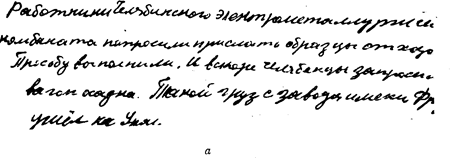 Работники Челябинского электрометаллургией
комбината попросили прислать образцы отходо
Просьбу выполнили. И вскоре челябинцы запроси-
вагон сырья. Такой груз с завода имени Фр
ушёл на Урал.
а